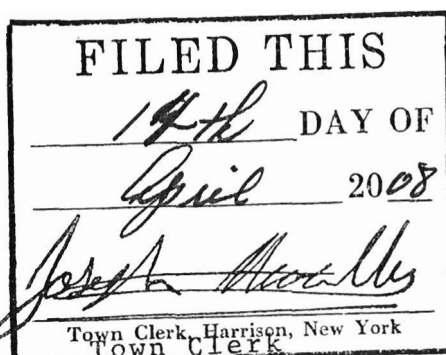 FILED THIS
14th DAY OF
April 2008
Joseph
Town Clerk, Harrison, New York
Town Clerk